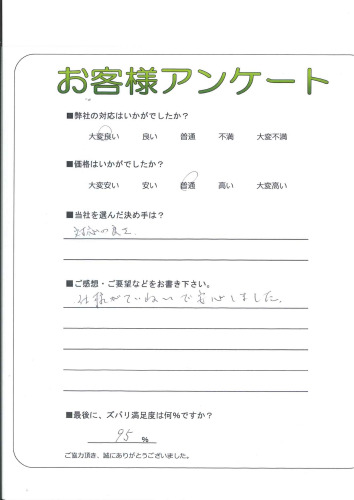 お客様アンケート
■弊社の対応はいかがでしたか？
大変良い 良い 普通 不満 大変不満
■価格はいかがでしたか？
大変安い 安い 普通 高い 大変高い
■当社を選んだ決め手は？
対応の良さ
■ご感想・ご要望などをお書き下さい。
ていねいで安心しました。
■最後に、ズバリ満足度は何%ですか？
95 %
ご協力頂き、誠にありがとうございました。